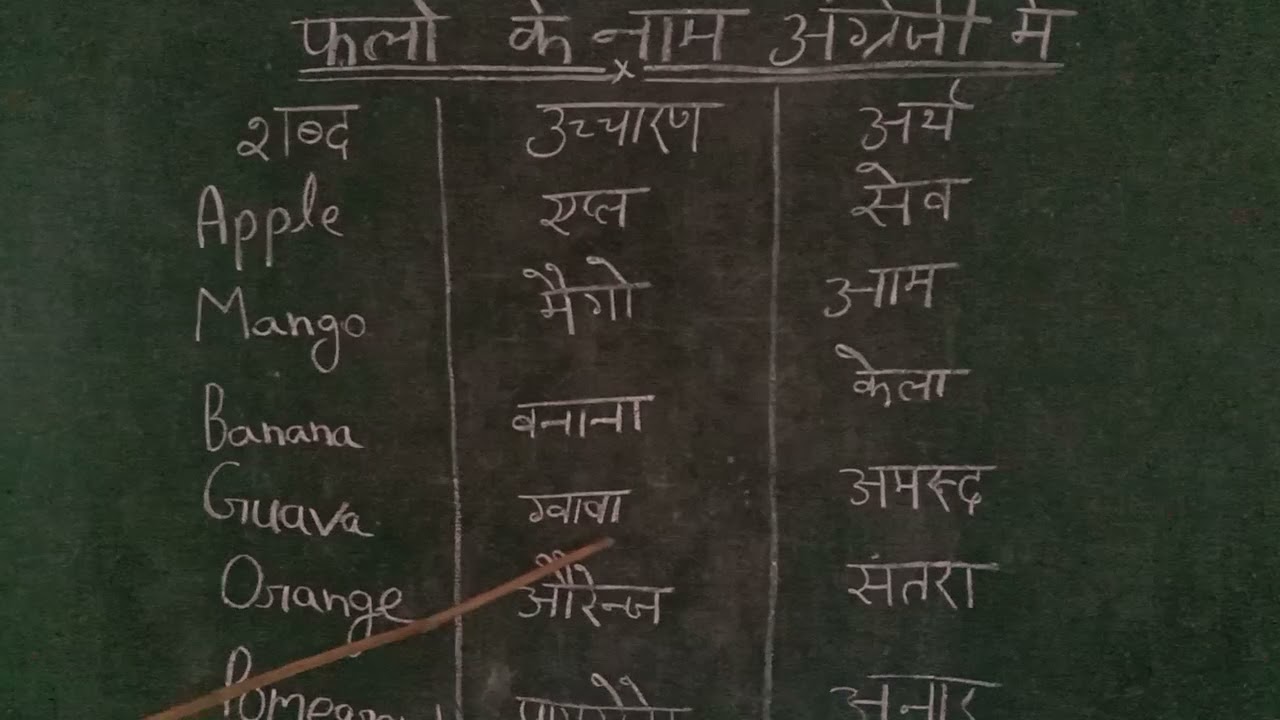 फलो के नाम अंग्रेजी मे
शब्द उच्चारण अर्थ
Apple एप्ल सेव
Mango मैगो आम
Banana बनाना केला
Guava ग्वावा अमरूद
Orange औरेन्ज संतरा
अनार